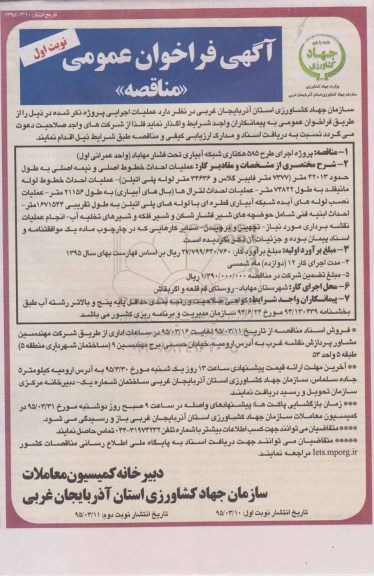 تاریخ انتشار: ۱۳۹۵/۰۳/۱۰
نوبت اول
جهاد
کشاورزی
وزارت جهاد کشاورزی
سازمان جهاد کشاورزی استان آذربایجان غربی
آگهی فراخوان عمومی
«مناقصه»
سازمان جهاد کشاورزی استان آذربایجان غربی در نظر دارد عملیات اجرایی پروژه ذکر شده در ذیل را از
طریق فراخوان عمومی به پیمانکاران واجد شرایط واگذار نماید لذا از شرکت های واجد صلاحیت دعوت
می گردد نسبت به دریافت اسناد و مدارک ارزیابی کیفی و مناقصه طبق شرایط ذیل اقدام نمایند.
۱- مناقصه: پروژه اجرای طرح ۵۸۵ هکتاری شبکه آبیاری تحت فشار مهاباد (واحد عمرانی اول)
۲- شرح مختصری از مشخصات و مقادیر کار: عملیات احداث خطوط اصلی و نیمه اصلی به طول
حدود ۳۲۰۱۳ متر (۷۳۷۷ متر فایبر گلاس و ۲۴۶۳۶ متر لوله پلی اتیلن)- عملیات احداث خطوط لوله
مانیفلد به طول ۷۳۸۲۲ متر- عملیات احداث لترال ها (بال های آبیاری) به طول ۲۱۱۵۶ متر- عملیات
نصب لوله های آبده شبکه آبیاری قطره ای با لوله های پلی اتیلن به طول تقریبی ۱۶۷۱۵۳۳ متر-
احداث ابنیه فنی شامل حوضچه های شیر فشار شکن و شیر فلکه و شیرهای تخلیه آب- انجام عملیات
نقشه برداری مورد نیاز- تجهیز و برچیدن- سایر کارهایی که در چارچوب ماده یک موافقتنامه و
اسناد پیمان بوده و جزئیات آن ذکر نگردیده است.
۳- مبلغ برآورد اولیه: مبلغ برآورد کار: ۲۷/۷۹۹/۶۳۰/۷۶۰ ریال بر اساس فهارست بهای سال ۱۳۹۵
۴- مدت اجرای کار ۱۲ (دوازده) ماه شمسی
۵- مبلغ تضمین شرکت در مناقصه ۱/۳۹۰/۰۰۰/۰۰۰ ریال
۶- محل اجرای کار: شهرستان مهاباد- روستای قم قلعه و اگریقاش
۷- پیمانکاران واجد شرایط: گواهی صلاحیت و رتبه بندی حداقل پایه پنج و بالاتر رشته آب طبق
بخشنامه ۹۴/۱۳۰۳۳۹ مورخ ۹۴/۶/۲۴ سازمان مدیریت و برنامه ریزی کشور می باشد.
* فروش اسناد مناقصه از تاریخ ۹۵/۰۳/۱۱ لغایت ۹۵/۰۳/۱۶ در ساعات اداری از طریق شرکت مهندسین
مشاور پردازش نقشه غرب به آدرس ارومیه، خیابان حسنی، برج مهندسین ۹ (ساختمان شهرداری منطقه ۵)
طبقه ۵ واحد ۵۳
** آخرین مهلت ارائه قیمت پیشنهادی ساعت ۱۳ روز یک شنبه مورخ ۹۵/۳/۳۰ به آدرس ارومیه کیلومتر ۵
جاده سلماس، سازمان جهاد کشاورزی استان آذربایجان غربی ساختمان شماره یک- دبیرخانه مرکزی
سازمان تحویل و رسید دریافت نمایند.
*** زمان بازگشایی پاکت ها: پیشنهادهای واصله در ساعت ۹ صبح روز دوشنبه مورخ ۹۵/۰۳/۳۱ در
کمیسیون معاملات سازمان جهاد کشاورزی استان آذربایجان غربی باز و رسیدگی می شود.
**** متقاضیان می توانند جهت کسب اطلاعات بیشتر با شماره تلفن ۳۱۹۷۳۲۳۲-۰۴۴ تماس حاصل نمایند.
***** متقاضیان می توانند جهت دریافت اسناد به پایگاه ملی اطلاع رسانی مناقصات کشور
Iets.mporg.ir مراجعه نمایند.
دبیرخانه کمیسیون معاملات
سازمان جهاد کشاورزی استان آذربایجان غربی
تاریخ انتشار نوبت اول: ۹۵/۰۳/۱۰ تاریخ انتشار نوبت دوم: ۹۵/۰۳/۱۱